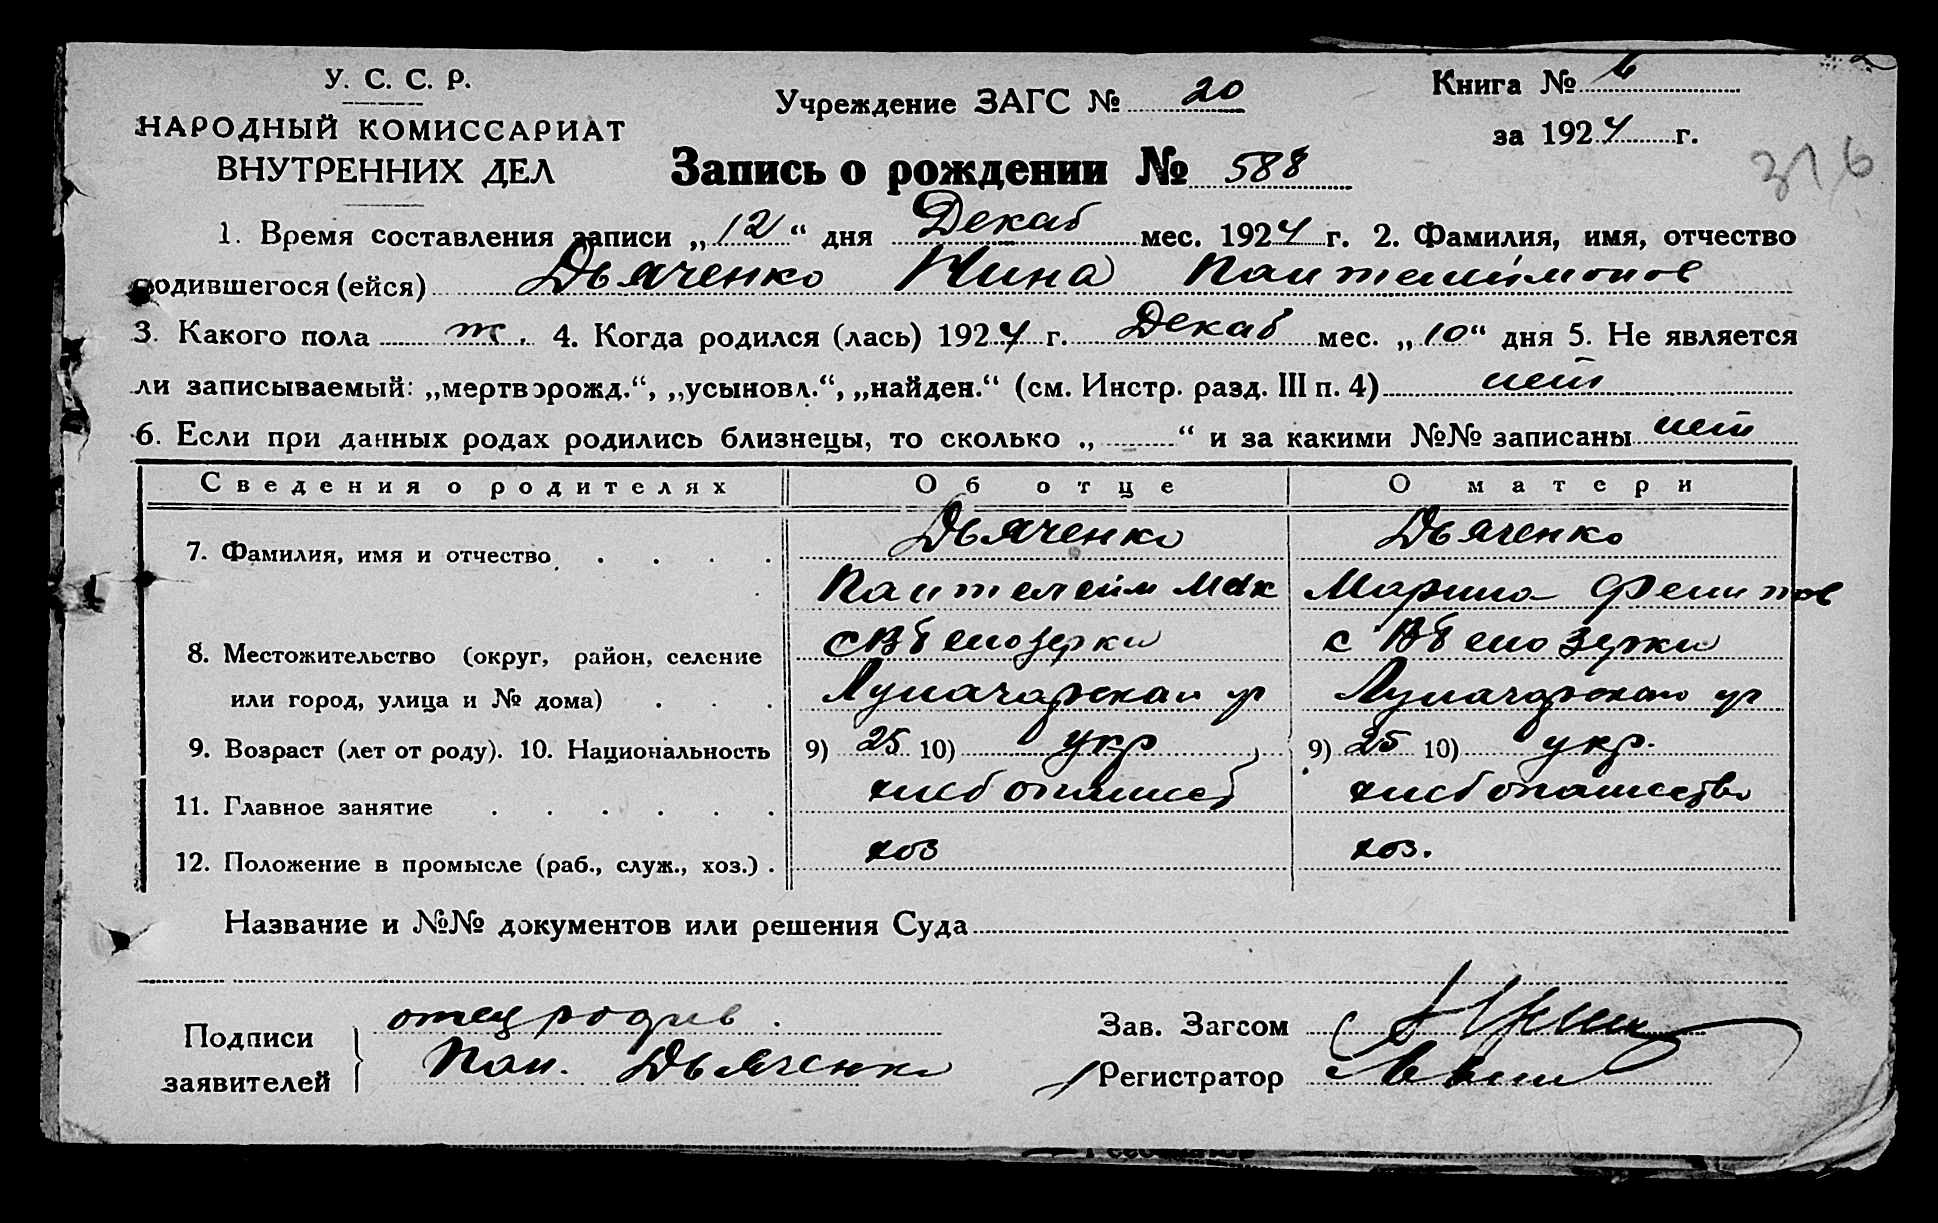 У. С. С. Р.
НАРОДНЫЙ КОМИССАРИАТ
ВНУТРЕННИХ ДЕЛ
Учреждение ЗАГС № 20
Книга №
за 1924 г.
Запись о рождении № 588
316
1. Время составления записи „12“ дня Декаб мес. 1924 г. 2. Фамилия, имя, отчество
родившегося (ейся) Дьяченко Нина Пантелимонов
3. Какого пола ж. 4. Когда родился (лась) 1924 г. Декаб мес. „10“ дня 5. Не является
ли записываемый: „мертворожд.“, „усыновл.“, „найден.“ (см. Инстр. разд. III п. 4) нет
6. Если при данных родах родились близнецы, то сколько „ “ и за какими №№ записаны нет
Сведения о родителях Об отце О матери
7. Фамилия, имя и отчество Дьяченко Дьяченко
Пантелейм Мак Марина
8. Местожительство (округ, район, селение с Белозерки с Белозерки
или город, улица и № дома) Луначарская ул Луначарская ул
9. Возраст (лет от роду). 10. Национальность 9) 25 10) укр 9) 25 10) укр.
11. Главное занятие хлебопашест хлебопашество
12. Положение в промысле (раб., служ., хоз.) хоз хоз.
Название и №№ документов или решения Суда
Подписи заявителей
отец родив.
Пан. Дьяченко
Зав. Загсом
Регистратор